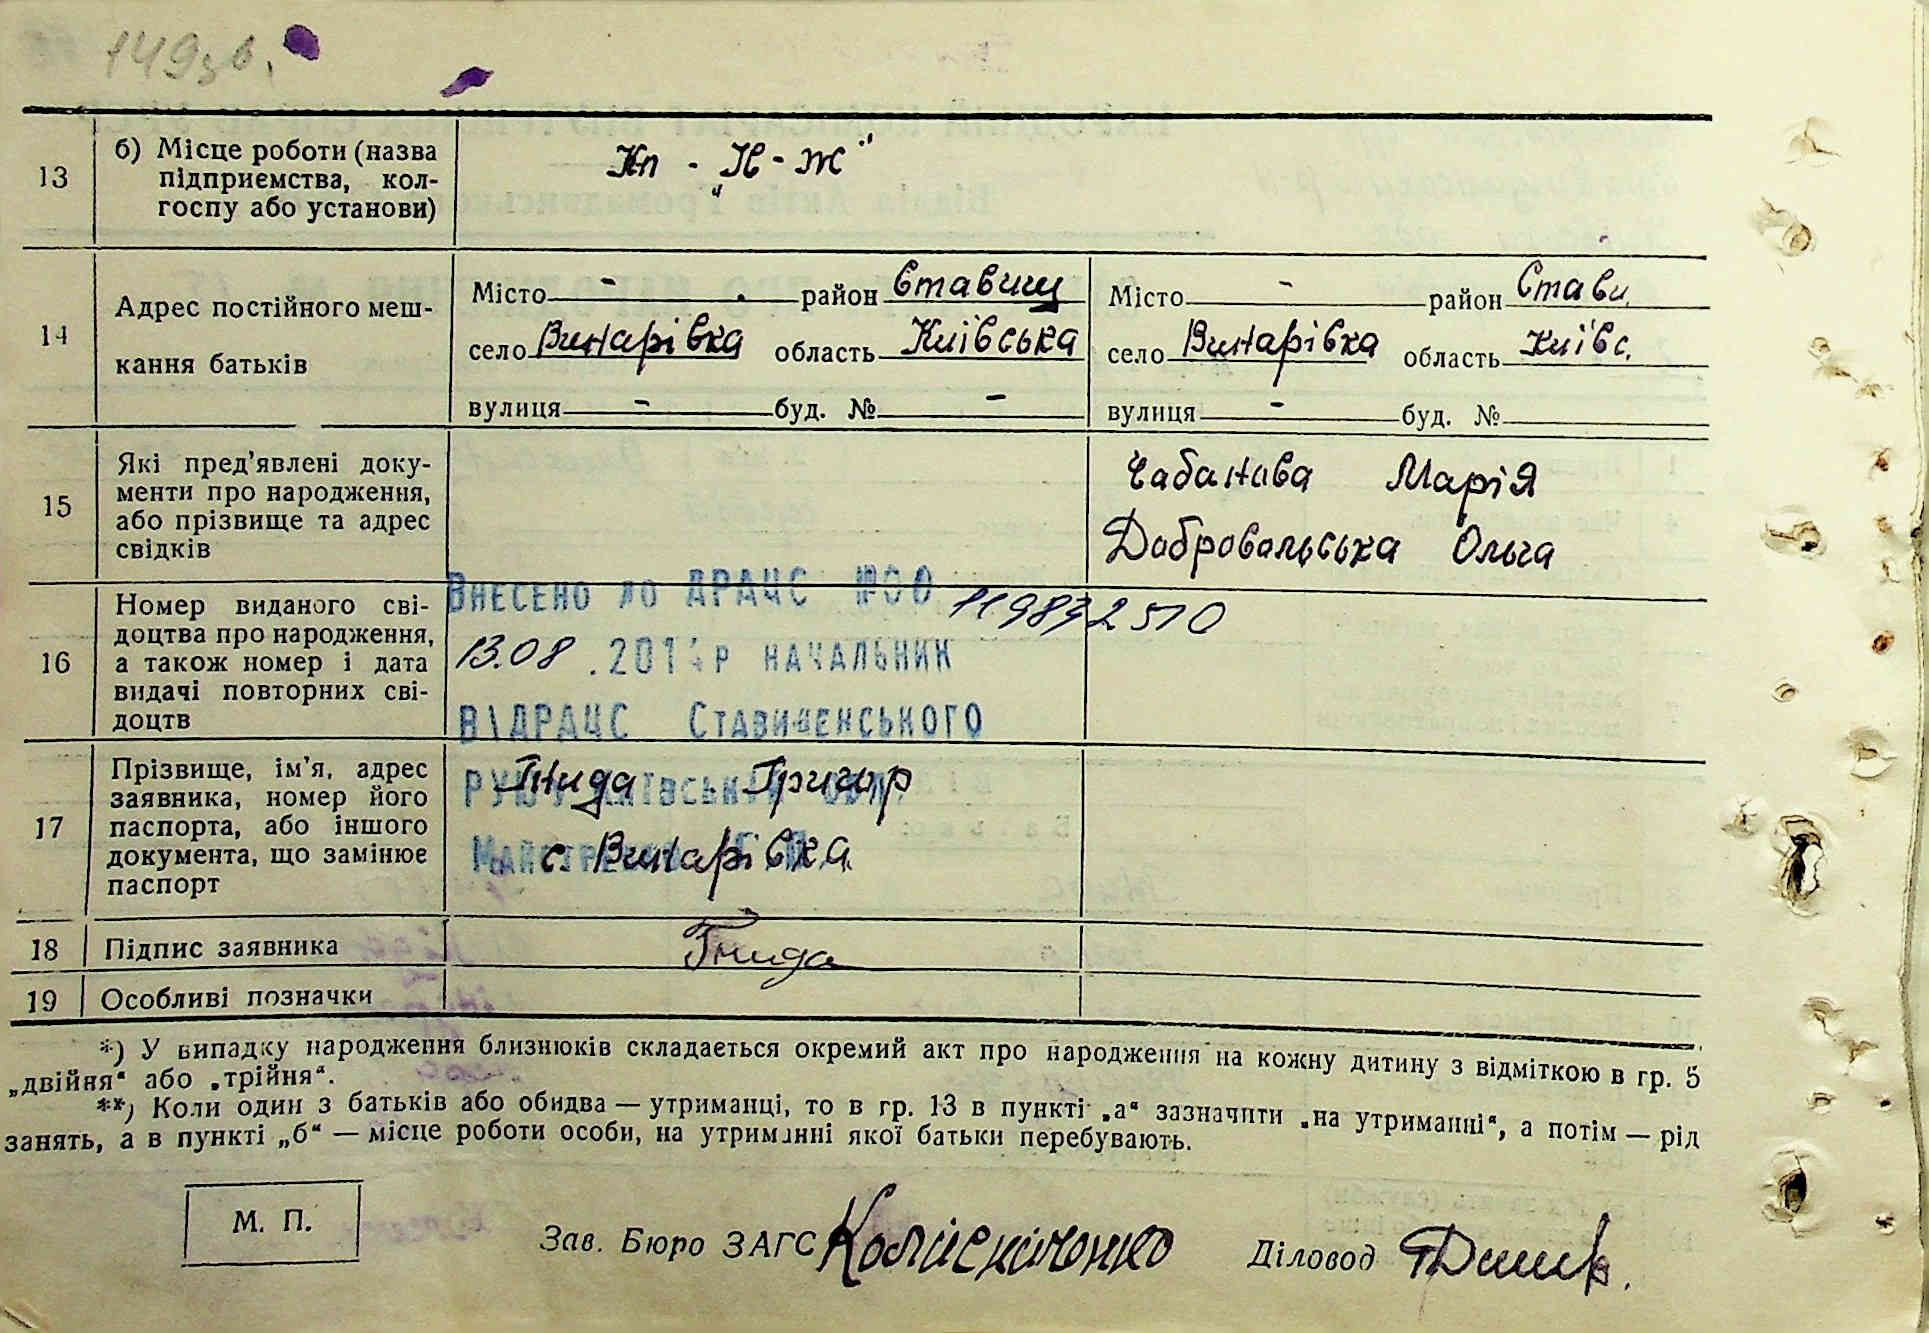 149зв.
13
б) Місце роботи (назва
підприємства, кол-
госпу або установи)
Кп - „Н-Ж"
14
Адрес постійного меш-
кання батьків
Місто - район Ставищ
село Винарівка область Київська
вулиця - буд. № -
Місто - район Стави.
село Винарівка область Київс.
вулиця - буд. №
15
Які пред'явлені доку-
менти про народження,
або прізвище та адрес
свідків
Чабанова Марія
Добровольська Ольга
16
Номер виданого сві-
доцтва про народження,
а також номер і дата
видачі повторних сві-
доцтв
Внесено до ДРАЦС №00
13.08.201 р начальник
ВІДРАЦС Ставищенського
17
Прізвище, ім'я, адрес
заявника, номер його
паспорта, або іншого
документа, що замінює
паспорт
Гнида Григор
с. Винарівка
18
Підпис заявника
Гнида
19
Особливі позначки
*) У випадку народження близнюків складається окремий акт про народження на кожну дитину з відміткою в гр. 5
„двійня“ або „трійня“.
**) Коли один з батьків або обидва — утриманці, то в гр. 13 в пункті „а“ зазначити „на утриманні“, а потім — рід
занять, а в пункті „б“ — місце роботи особи, на утриманні якої батьки перебувають.
М. П.
Зав. Бюро ЗАГС
Діловод